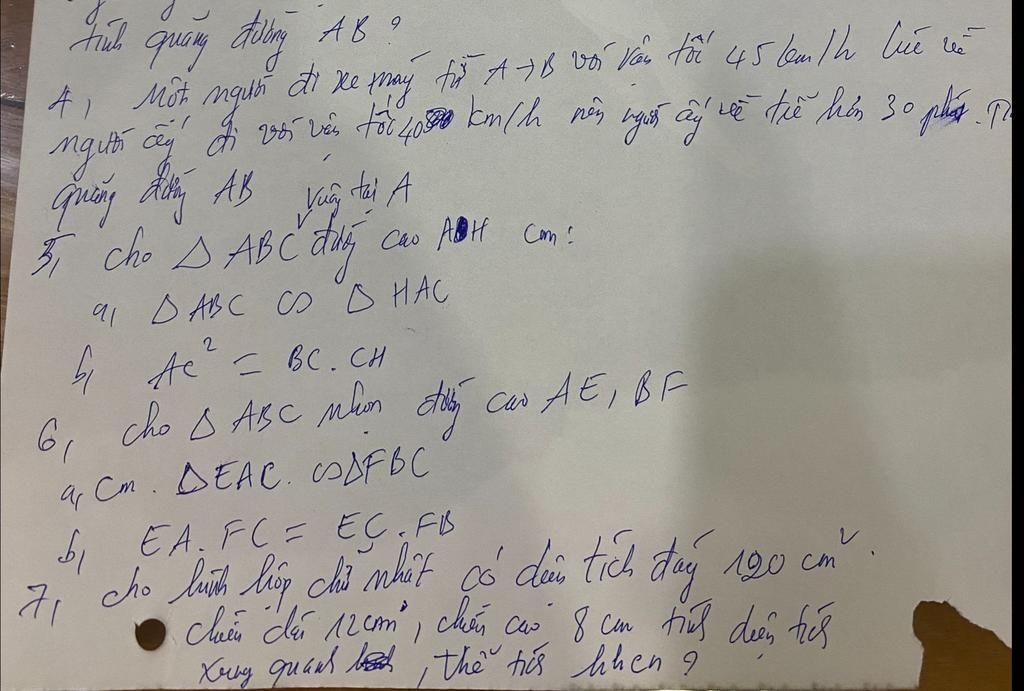 tính quãng đường AB ?
4, Một người đi xe máy từ A → B với vận tốc 45 km/h lúc về
người ấy đi với vận tốc 40 km/h nên người ấy về trễ hơn 30 phút.
quãng đường AB
vuông tại A
5, cho △ ABC đường cao AH cm:
a, △ ABC ∽ △ HAC
b, AC² = BC . CH
6, cho △ ABC nhọn đường cao AE, BF
a, Cm . △EAC . ∽ △FBC
b, EA . FC = EC . FB
7, cho hình hộp chữ nhật có diện tích đáy 120 cm² .
chiều dài 12cm , chiều cao 8 cm tính diện tích
xung quanh , thể tích hhcn ?